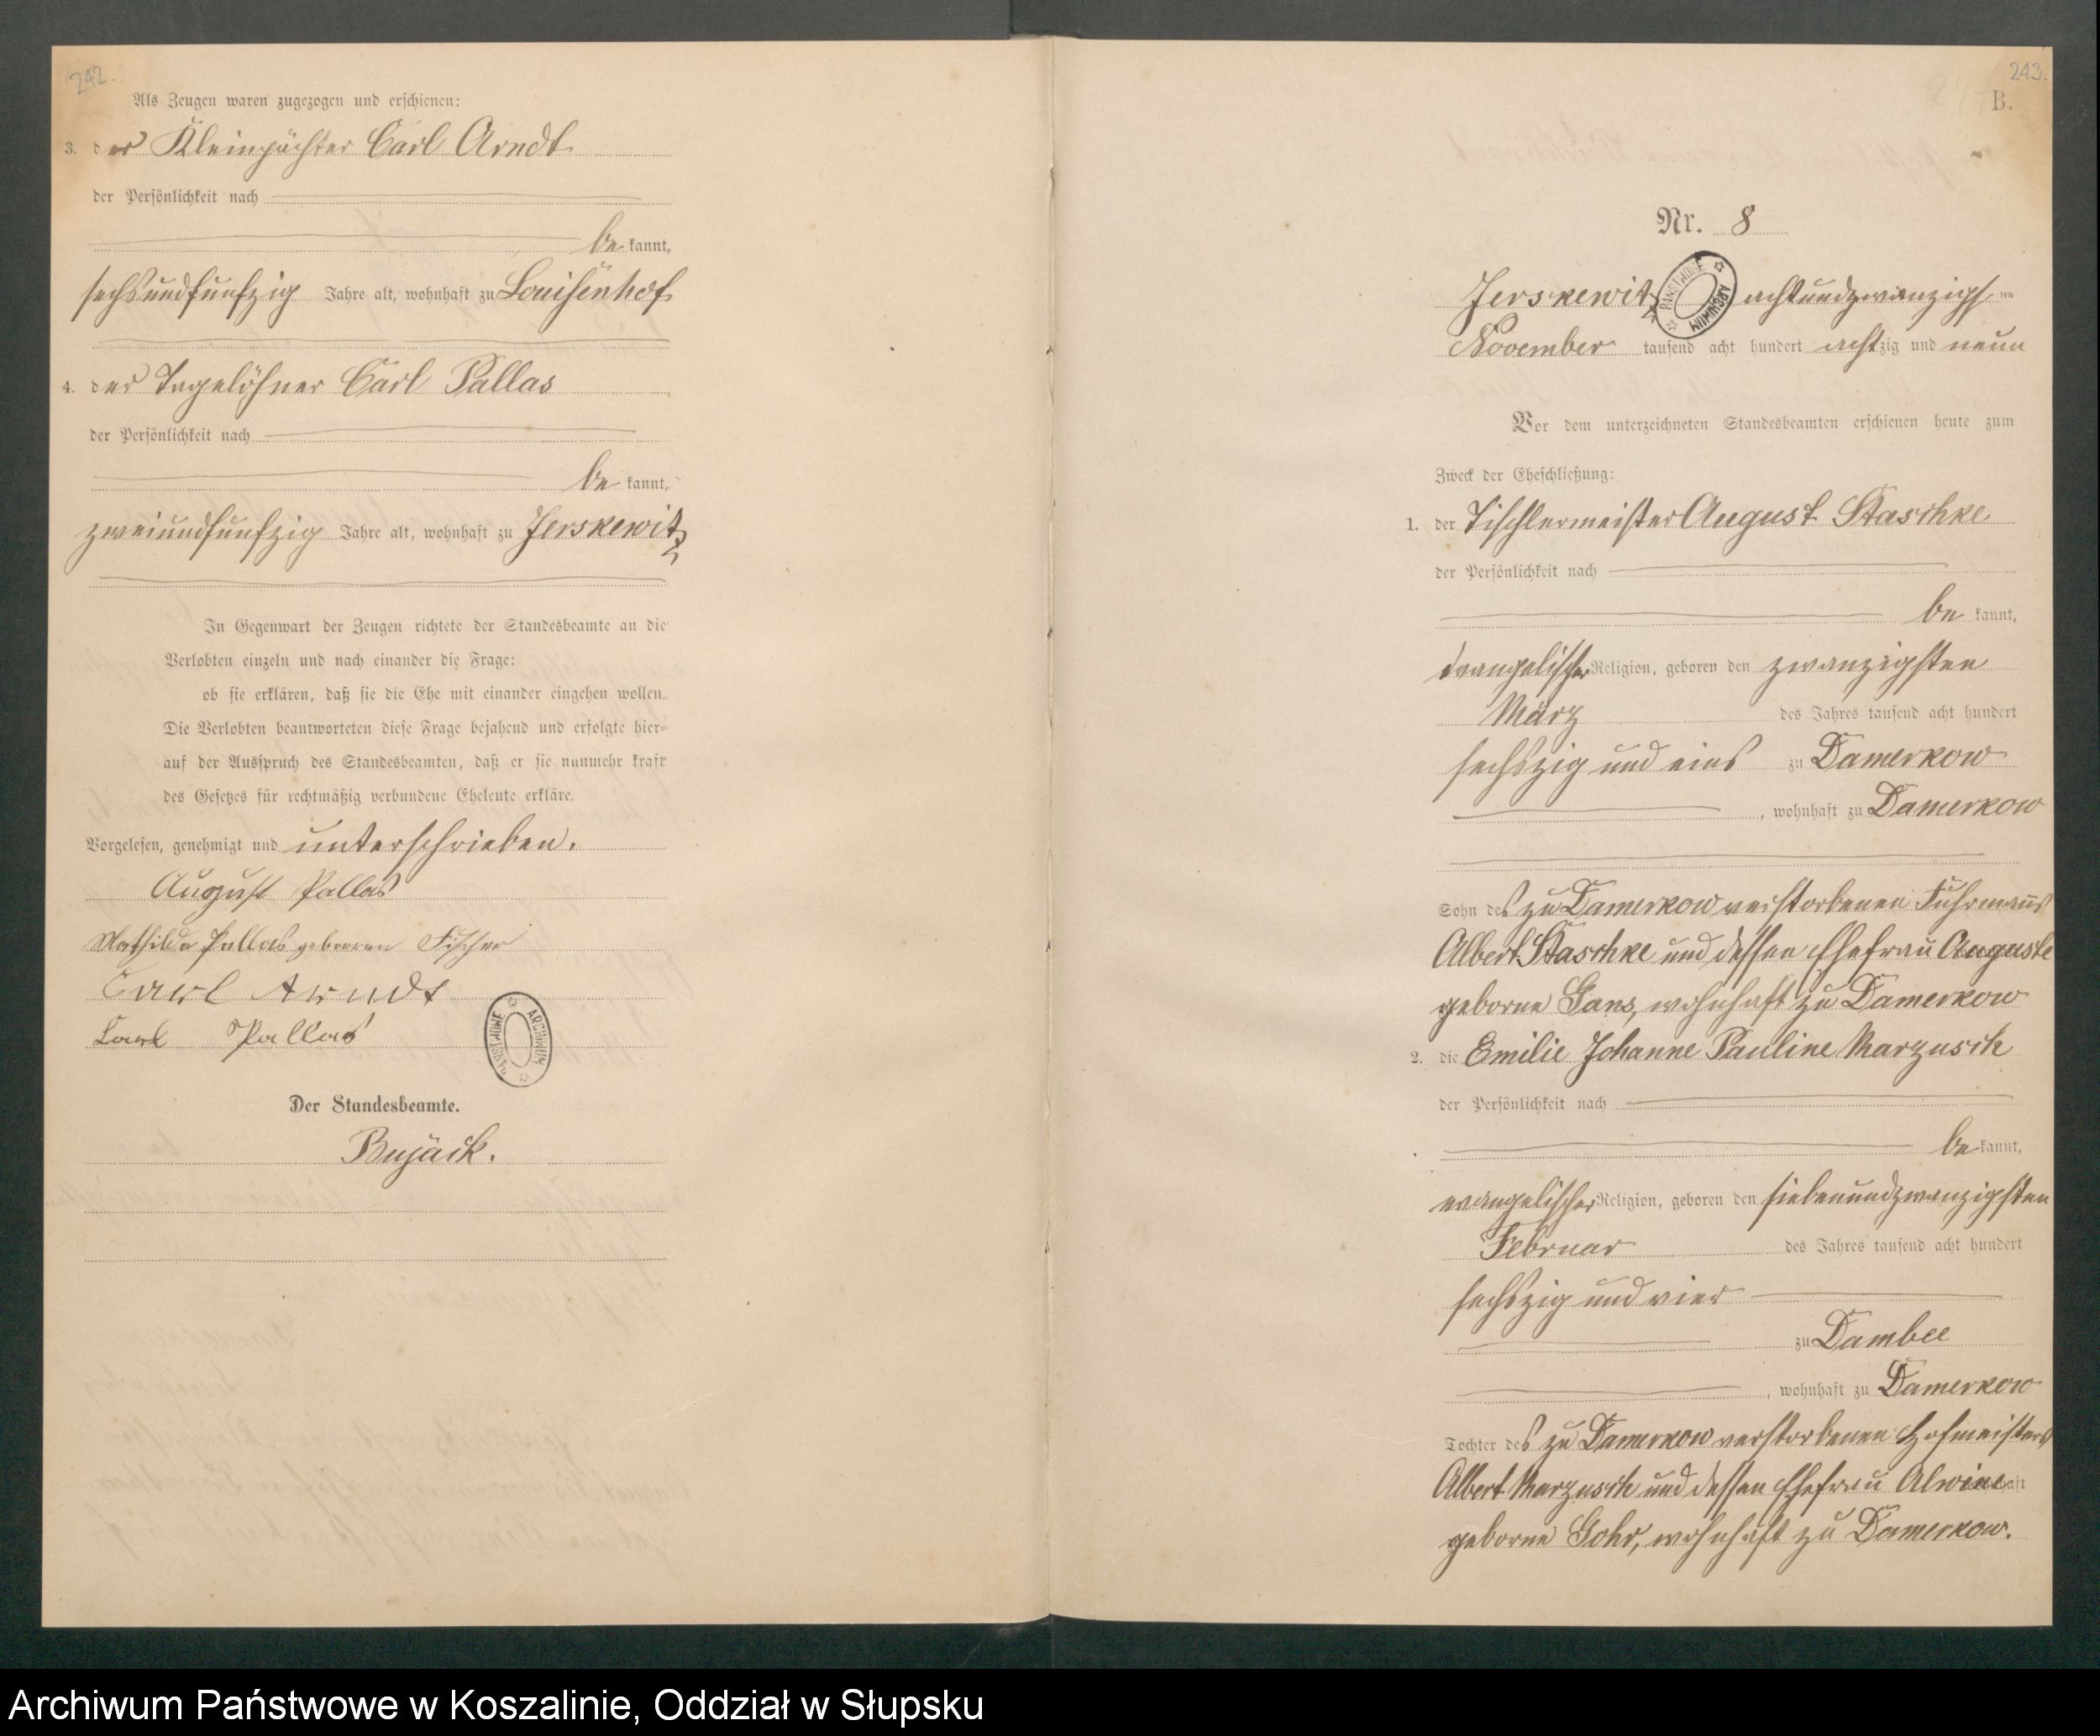 242.
Als Zeugen waren zugezogen und erschienen:
3. der Kleinpächter Carl Arndt
der Persönlichkeit nach
be kannt,
sechsundfunfzig Jahre alt, wohnhaft zu Louisenhof
4. der Tagelöhner Carl Pallas
der Persönlichkeit nach
be kannt,
zweiundfunfzig Jahre alt, wohnhaft zu Jerskewitz
In Gegenwart der Zeugen richtete der Standesbeamte an die
Verlobten einzeln und nach einander die Frage:
ob sie erklären, daß sie die Ehe mit einander eingehen wollen.
Die Verlobten beantworteten diese Frage bejahend und erfolgte hier-
auf der Ausspruch des Standesbeamten, daß er sie nunmehr kraft
des Gesetzes für rechtmäßig verbundene Eheleute erkläre.
Vorgelesen, genehmigt und unterschrieben.
August Pallas
Mathilde Pallas geborenen Fischer
Carl Arndt
Carl Pallas
ARCHIWUM PAŃSTWOWE
Der Standesbeamte.
Bujack.
243.
B.
Nr. 8
Jerskewitz achtundzwanzigsten
PAŃSTWOWE ARCHIWUM
November tausend acht hundert achtzig und neun
Vor dem unterzeichneten Standesbeamten erschienen heute zum
Zweck der Eheschließung:
1. der Tischlermeister August Staschke
der Persönlichkeit nach
be kannt,
evangelischer Religion, geboren den zwanzigsten
März des Jahres tausend acht hundert
sechszig und eins zu Damerkow
, wohnhaft zu Damerkow
Sohn des zu Damerkow verstorbenen Fuhrmanns
Albert Staschke und dessen Ehefrau Auguste
geborne Gans, wohnhaft zu Damerkow
2. die Emilie Johanne Pauline Marzusch
der Persönlichkeit nach
be kannt,
evangelischer Religion, geboren den siebenundzwanzigsten
Februar des Jahres tausend acht hundert
sechszig und vier
zu Dambee
, wohnhaft zu Damerkow
Tochter des zu Damerkow verstorbenen Hofmeisters
Albert Marzusch und dessen Ehefrau Alwine
geborne Gohr, wohnhaft zu Damerkow.
Archiwum Państwowe w Koszalinie, Oddział w Słupsku